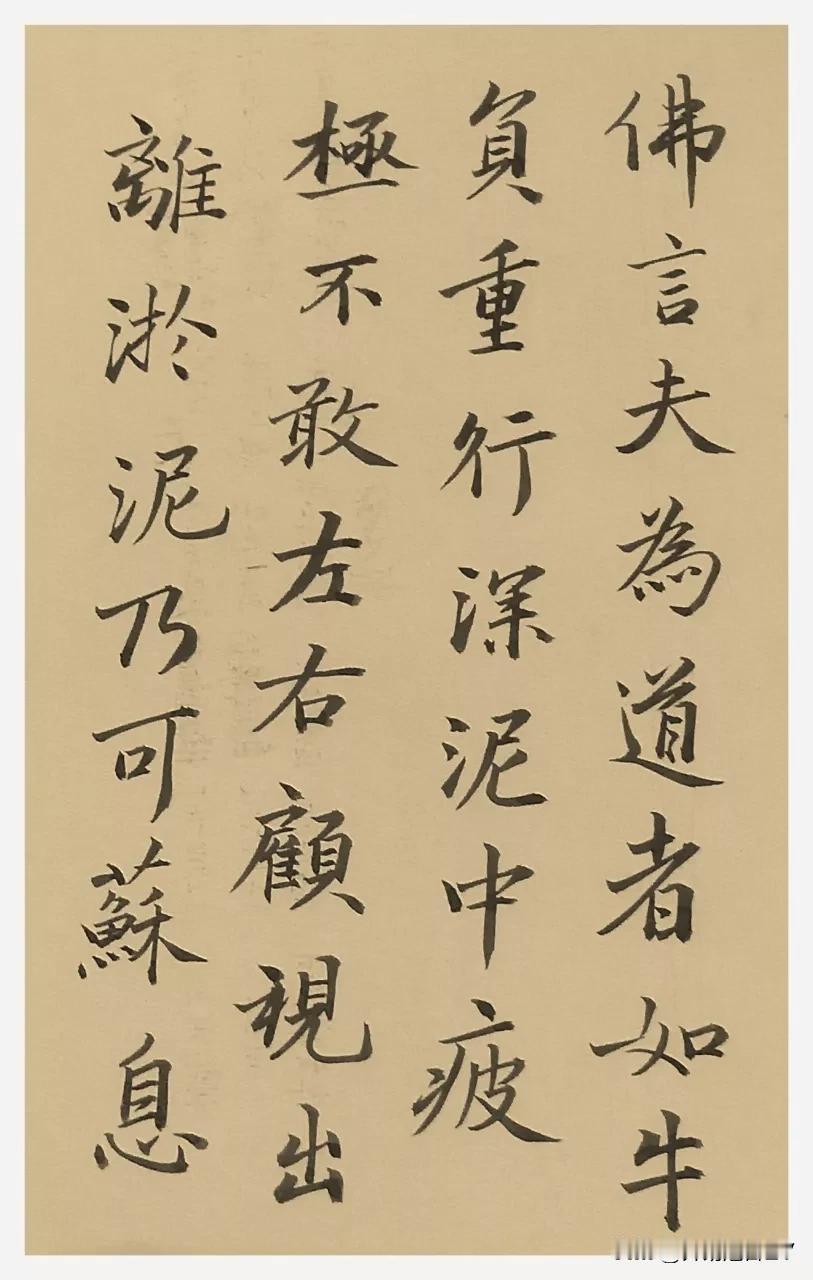 佛言夫為道者如牛
負重行深泥中疲
極不敢左右顧視出
離淤泥乃可蘇息